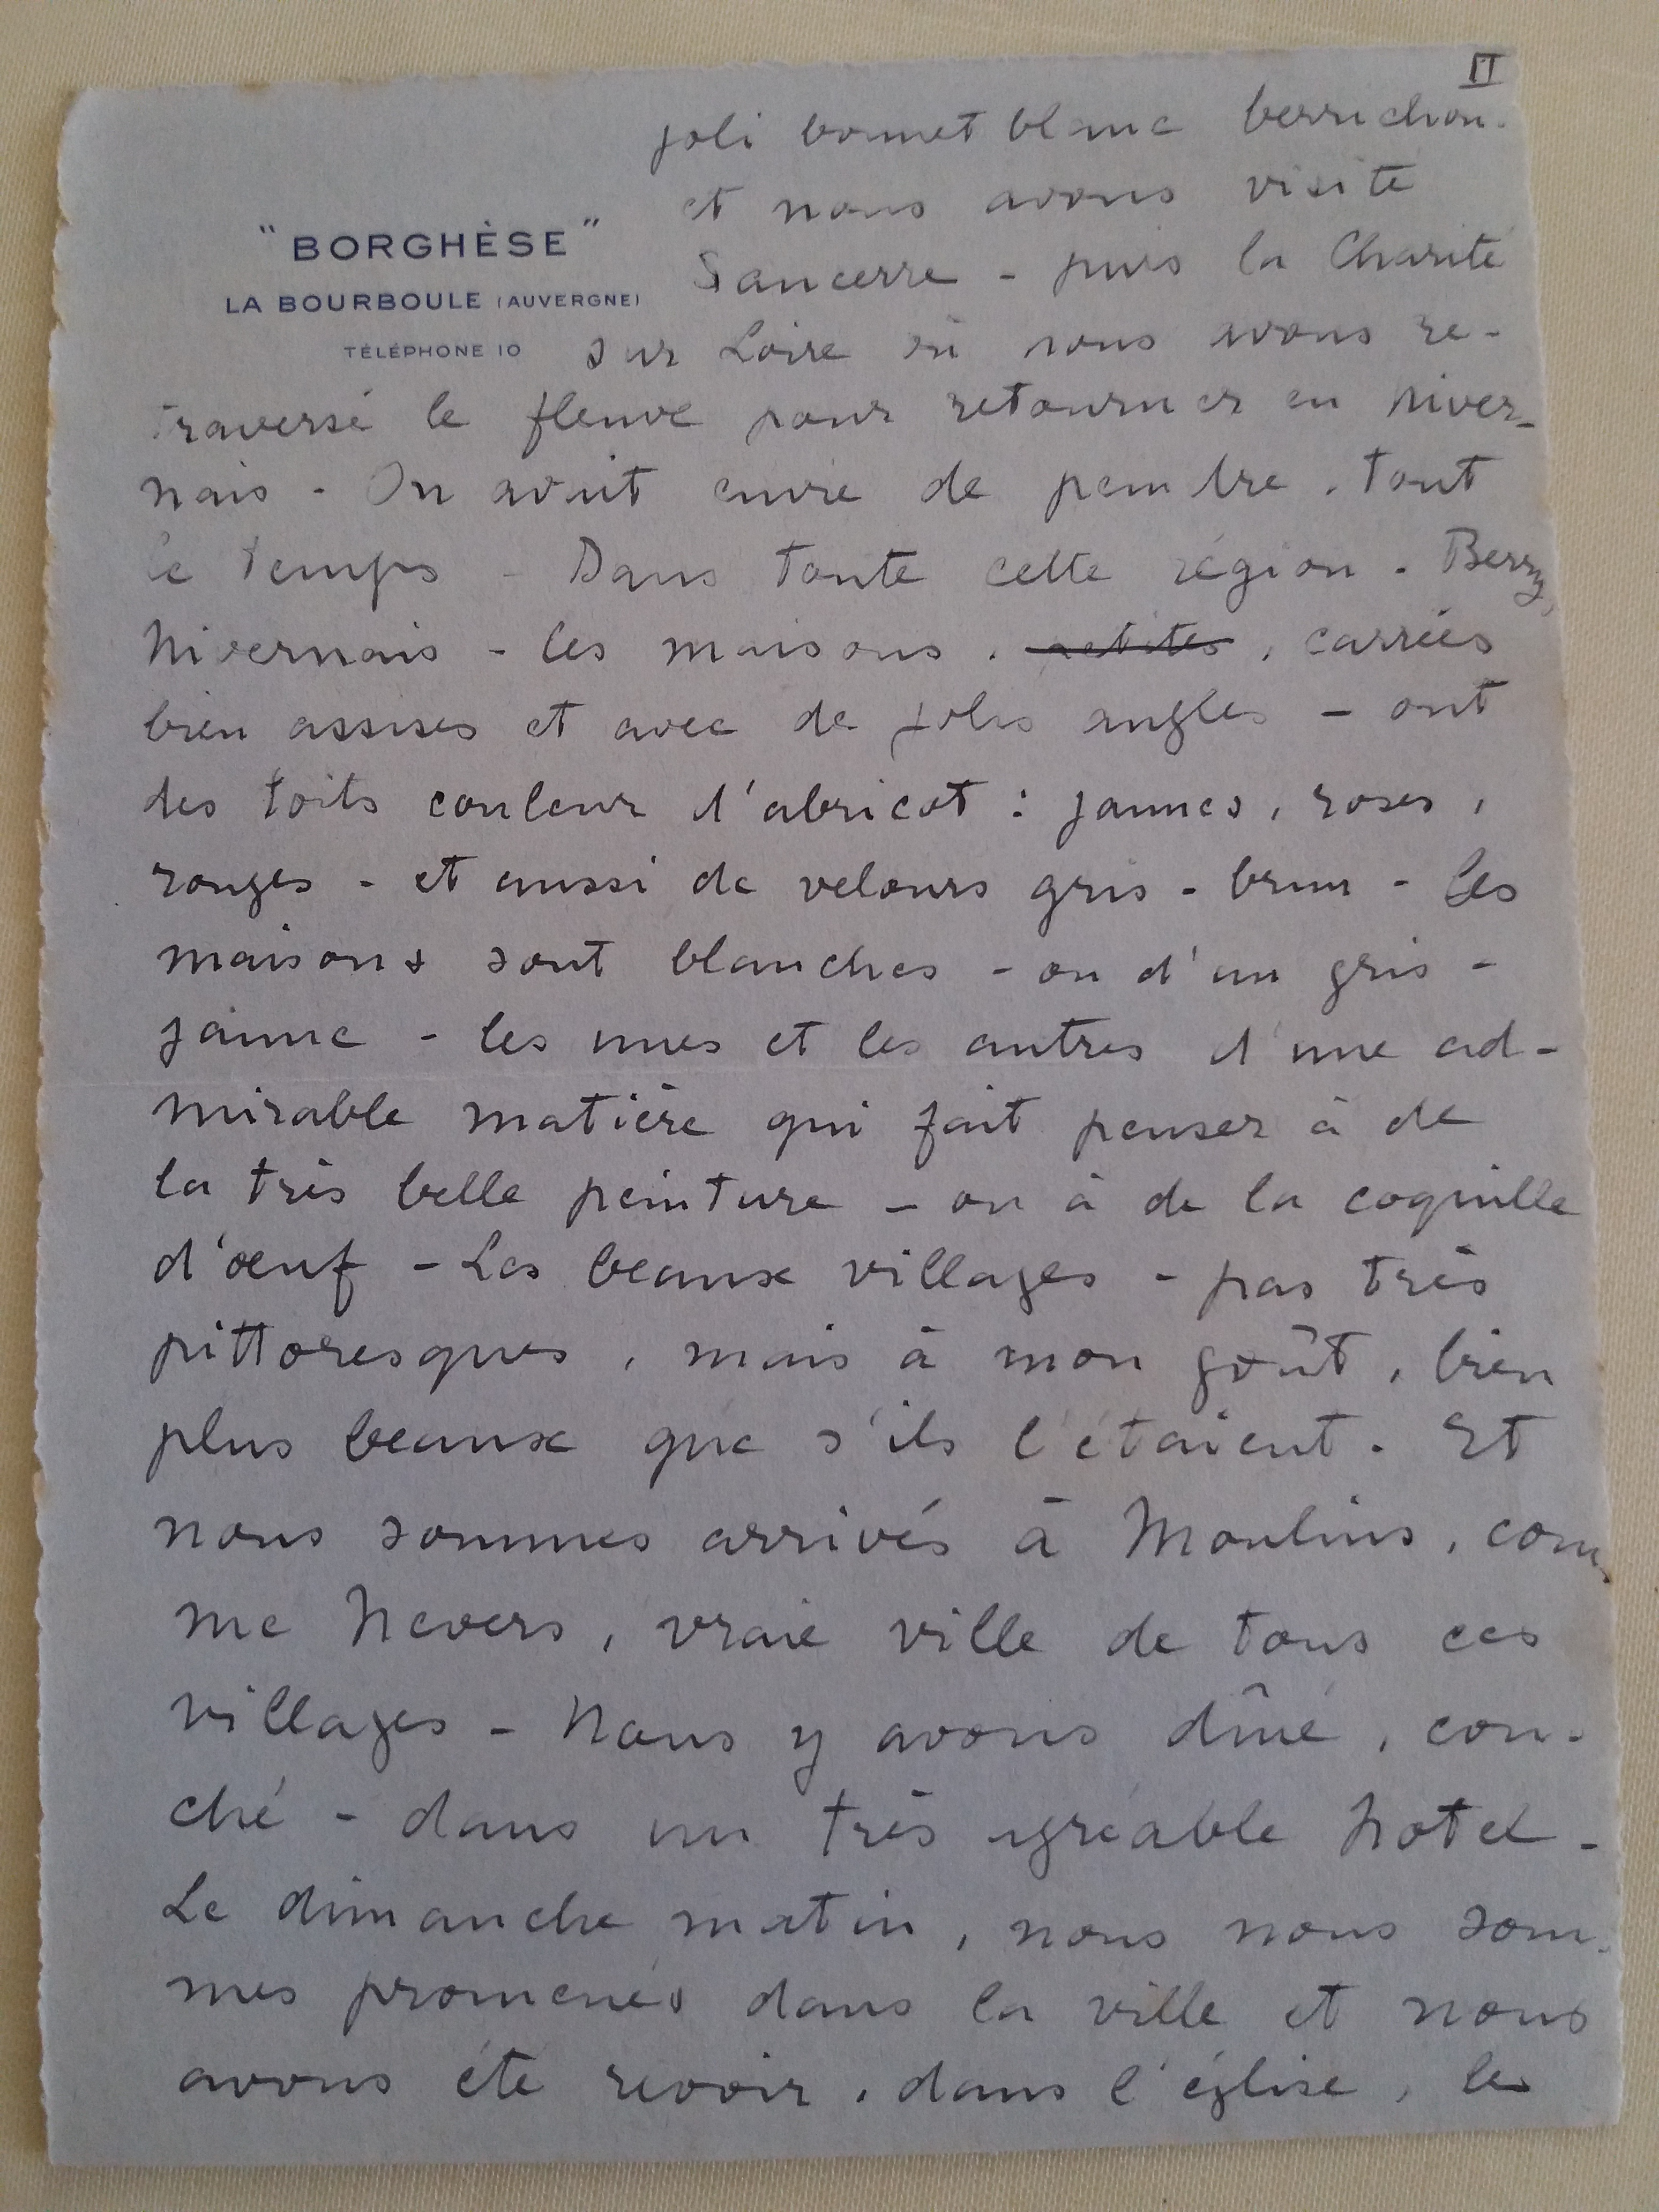 II
joli bonnet blanc berrichon.
"BORGHÈSE"
LA BOURBOULE (AUVERGNE)
TÉLÉPHONE 10
et nous avons visité
Sancerre - puis la Charité
sur Loire où nous avons re-
traversé le fleuve pour retourner en Niver-
nais - On avait envie de peindre, tout
le temps - Dans toute cette région - Berry,
Nivernais - les maisons, petites, carrées
bien assises et avec de jolis angles - ont
des toits couleur d'abricot : jaunes, roses,
rouges - et aussi de velours gris-brun - Les
maisons sont blanches - ou d'un gris-
jaune - les unes et les autres d'une ad-
mirable matière qui fait penser à de
la très belle peinture - ou à de la coquille
d'œuf - Les beaux villages - pas très
pittoresques, mais à mon goût, bien
plus beaux que s'ils l'étaient. Et
nous sommes arrivés à Moulins, com-
me Nevers, vraie ville de tous ces
villages - Nous y avons dîné, cou-
ché - dans un très agréable hotel -
Le dimanche matin, nous nous som-
mes promenés dans la ville et nous
avons été revoir, dans l'église, le